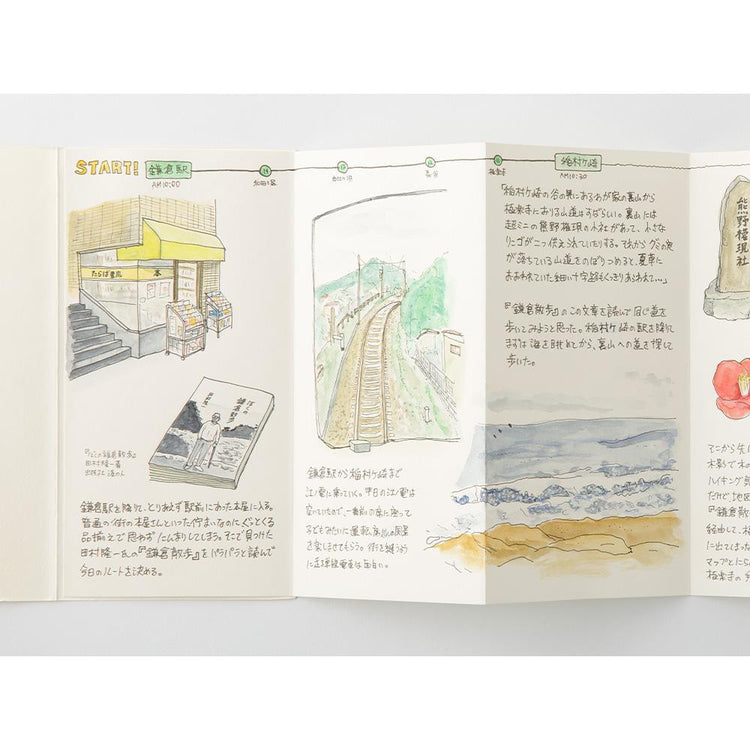 START!
鎌倉駅
AM10:00
和田塚
由比ヶ浜
長谷
極楽寺
稲村ヶ崎
AM10:30
たらば書房
本
ぼくの
鎌倉散歩
田村隆一
『ぼくの鎌倉散歩』
田村隆一著
出版 港の人
鎌倉駅を降りて、とりあえず駅前にあった本屋に入る。
普通の街の本屋さんといった佇まいなのにぐっとくる
品揃えで思わずにんまりしてしまう。そこで見つけた
田村隆一氏の『鎌倉散歩』をパラパラと読んで
今日のルートを決める。
鎌倉駅から稲村ヶ崎まで
江ノ電に乗っていく。平日の江ノ電は
空いていたので、一番前の席に座って
子どもみたいに運転席からの風景
を楽しませてもらう。街を縫うように
走る路面電車は面白い。
「稲村ヶ崎の谷の奥にあるわが家の裏山から
極楽寺におりる山道はすばらしい。裏山には
超ミニの熊野権現の小社があって、小さな
リンゴが二つ供えられていたりする。それからグミの実
が落ちている山道をのぼりつめると、夏草に
おおわれていた細い十字路もくっきりあらわれて…」
『鎌倉散歩』のこの文章を読んで同じ道を
歩いてみようと思った。稲村ヶ崎の駅を降りて
まずは海を眺めてから、裏山への道を探して
歩いた。
熊野権現社
マニから
木影で
ハイキング
だけど地図
『鎌倉散
経由して、極
に出てはっ
マップとにら
極楽寺の